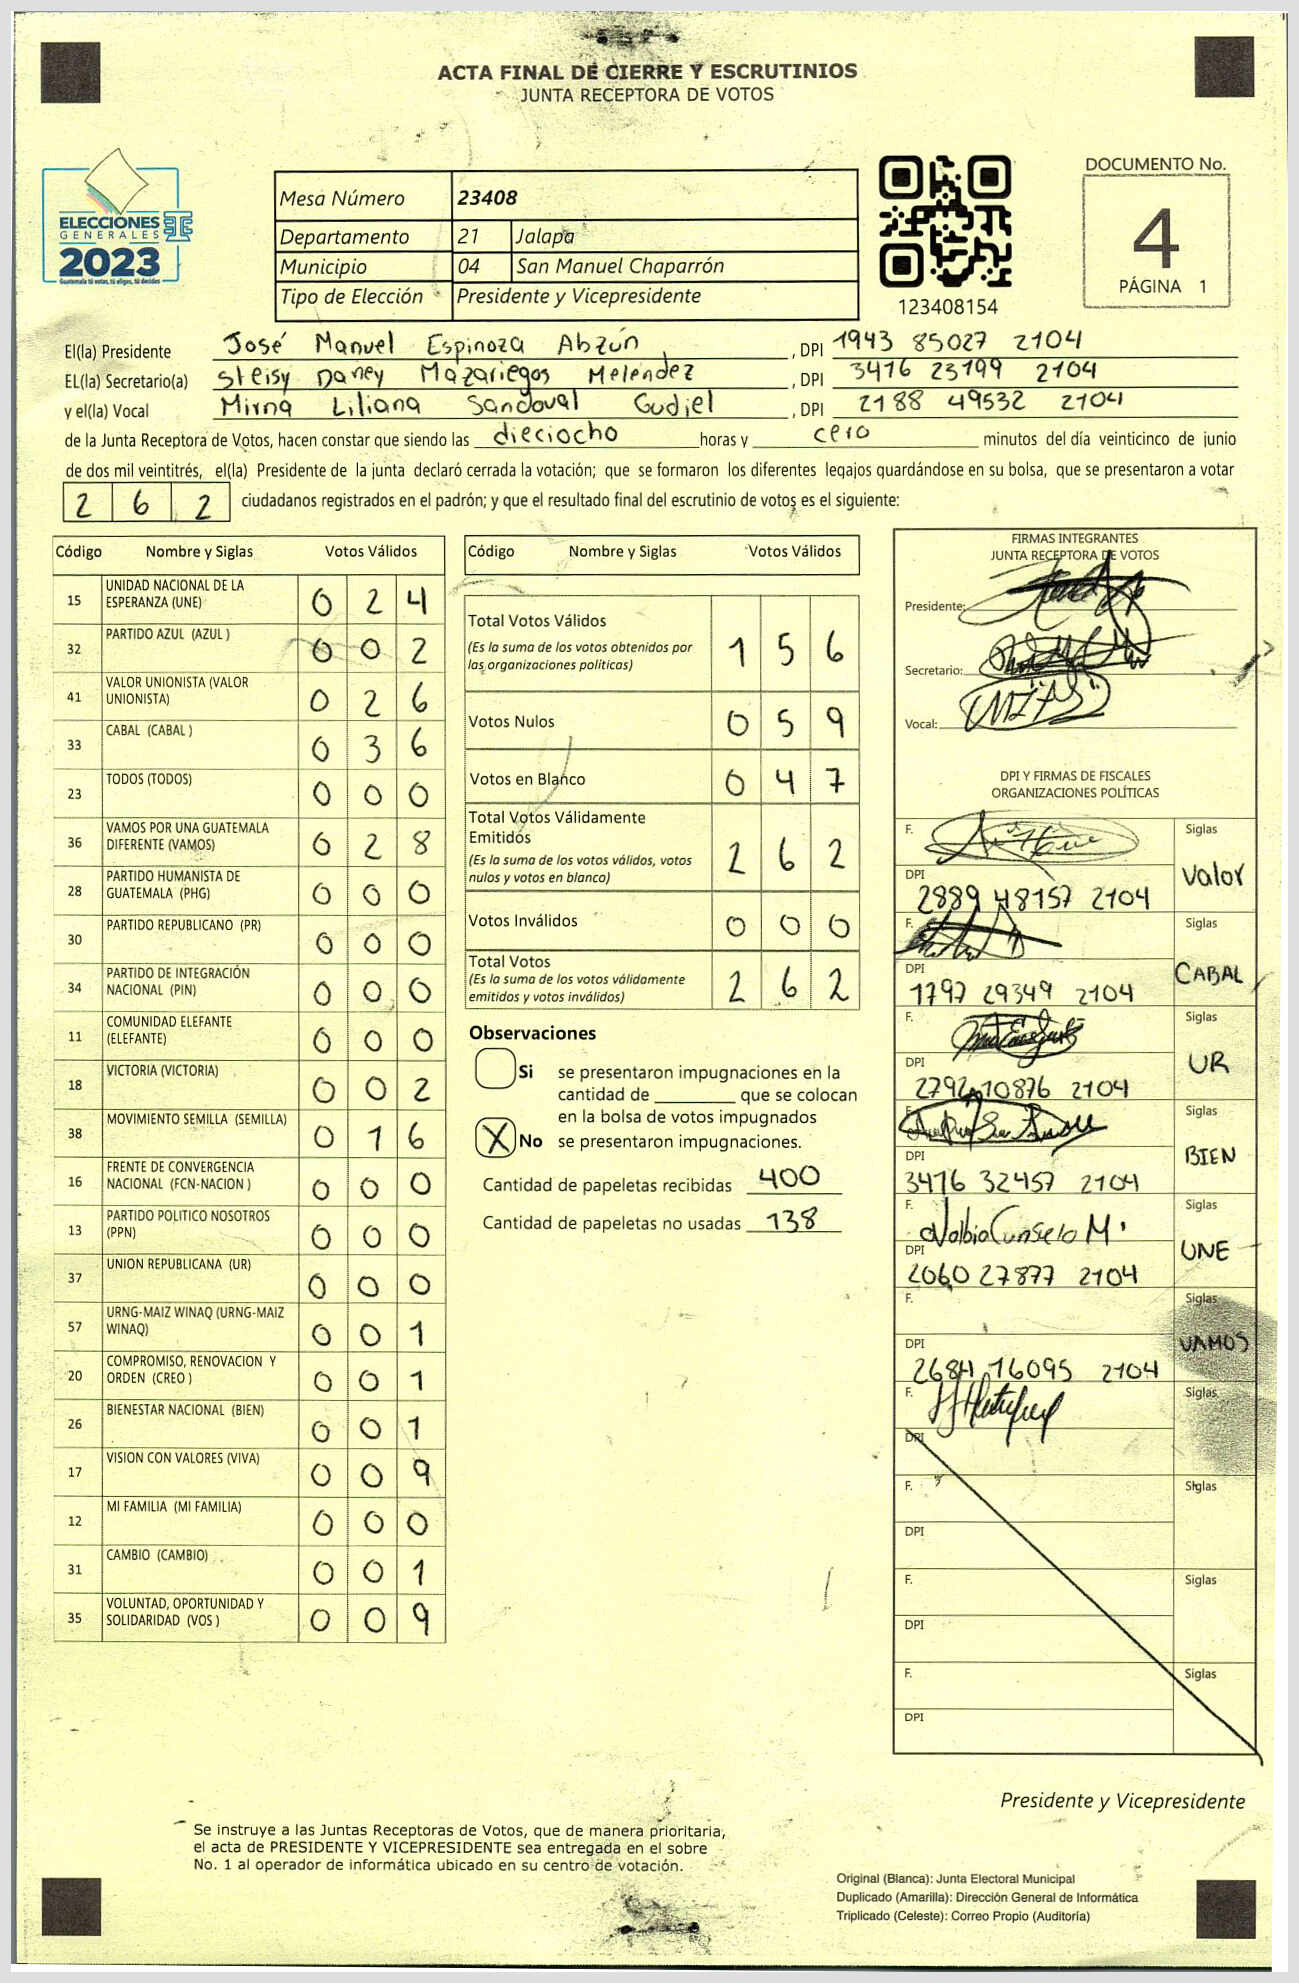 ACTA FINAL DE CIERRE Y ESCRUTINIOS
JUNTA RECEPTORA DE VOTOS
ELECCIONES
GENERALES
2023
Guatemala tú votas, tú eliges, tú decides
Mesa Número 23408
Departamento 21 Jalapa
Municipio 04 San Manuel Chaparrón
Tipo de Elección Presidente y Vicepresidente
123408154
DOCUMENTO No.
4
PÁGINA 1
El(la) Presidente José Manuel Espinoza Abzún, DPI 1943 85027 2104
EL(la) Secretario(a) Steisy Daney Mazariegos Meléndez, DPI 3416 23199 2104
y el(la) Vocal Mirna Liliana Sandoval Gudiel, DPI 2188 49532 2104
de la Junta Receptora de Votos, hacen constar que siendo las dieciocho horas y cero minutos del día veinticinco de junio
de dos mil veintitrés, el(la) Presidente de la junta declaró cerrada la votación; que se formaron los diferentes legajos guardándose en su bolsa, que se presentaron a votar
2 6 2 ciudadanos registrados en el padrón; y que el resultado final del escrutinio de votos es el siguiente:
Código Nombre y Siglas Votos Válidos
15 UNIDAD NACIONAL DE LA
ESPERANZA (UNE) 0 2 4
32 PARTIDO AZUL (AZUL ) 0 0 2
41 VALOR UNIONISTA (VALOR
UNIONISTA) 0 2 6
33 CABAL (CABAL ) 0 3 6
23 TODOS (TODOS) 0 0 0
36 VAMOS POR UNA GUATEMALA
DIFERENTE (VAMOS) 0 2 8
28 PARTIDO HUMANISTA DE
GUATEMALA (PHG) 0 0 0
30 PARTIDO REPUBLICANO (PR) 0 0 0
34 PARTIDO DE INTEGRACIÓN
NACIONAL (PIN) 0 0 0
11 COMUNIDAD ELEFANTE
(ELEFANTE) 0 0 0
18 VICTORIA (VICTORIA) 0 0 2
38 MOVIMIENTO SEMILLA (SEMILLA) 0 1 6
16 FRENTE DE CONVERGENCIA
NACIONAL (FCN-NACION ) 0 0 0
13 PARTIDO POLITICO NOSOTROS
(PPN) 0 0 0
37 UNION REPUBLICANA (UR) 0 0 0
57 URNG-MAIZ WINAQ (URNG-MAIZ
WINAQ) 0 0 1
20 COMPROMISO, RENOVACION Y
ORDEN (CREO ) 0 0 1
26 BIENESTAR NACIONAL (BIEN) 0 0 1
17 VISION CON VALORES (VIVA) 0 0 9
12 MI FAMILIA (MI FAMILIA) 0 0 0
31 CAMBIO (CAMBIO) 0 0 1
35 VOLUNTAD, OPORTUNIDAD Y
SOLIDARIDAD (VOS ) 0 0 9
Código Nombre y Siglas Votos Válidos
Total Votos Válidos 1 5 6
(Es la suma de los votos obtenidos por
las organizaciones politicas)
Votos Nulos 0 5 9
Votos en Blanco 0 4 7
Total Votos Válidamente
Emitidos 2 6 2
(Es la suma de los votos válidos, votos
nulos y votos en blanco)
Votos Inválidos 0 0 0
Total Votos 2 6 2
(Es la suma de los votos válidamente
emitidos y votos inválidos)
Observaciones
Si se presentaron impugnaciones en la
cantidad de ________ que se colocan
en la bolsa de votos impugnados
X No se presentaron impugnaciones.
Cantidad de papeletas recibidas 400
Cantidad de papeletas no usadas 138
FIRMAS INTEGRANTES
JUNTA RECEPTORA DE VOTOS
Presidente:
Secretario:
Vocal:
DPI Y FIRMAS DE FISCALES
ORGANIZACIONES POLÍTICAS
F. Siglas
Valor
DPI
2889 48157 2104
F. Siglas
CABAL
DPI
1797 29349 2104
F. Siglas
UR
DPI
2792 10876 2104
F. Siglas
BIEN
DPI
3476 32457 2104
F. Siglas
UNE
DPI
2060 27877 2104
F. Siglas
VAMOS
DPI
2684 16095 2104
F. Siglas
DPI
F. Siglas
DPI
F. Siglas
DPI
F. Siglas
DPI
Presidente y Vicepresidente
Se instruye a las Juntas Receptoras de Votos, que de manera prioritaria,
el acta de PRESIDENTE Y VICEPRESIDENTE sea entregada en el sobre
No. 1 al operador de informática ubicado en su centro de votación.
Original (Blanca): Junta Electoral Municipal
Duplicado (Amarilla): Dirección General de Informática
Triplicado (Celeste): Correo Propio (Auditoría)